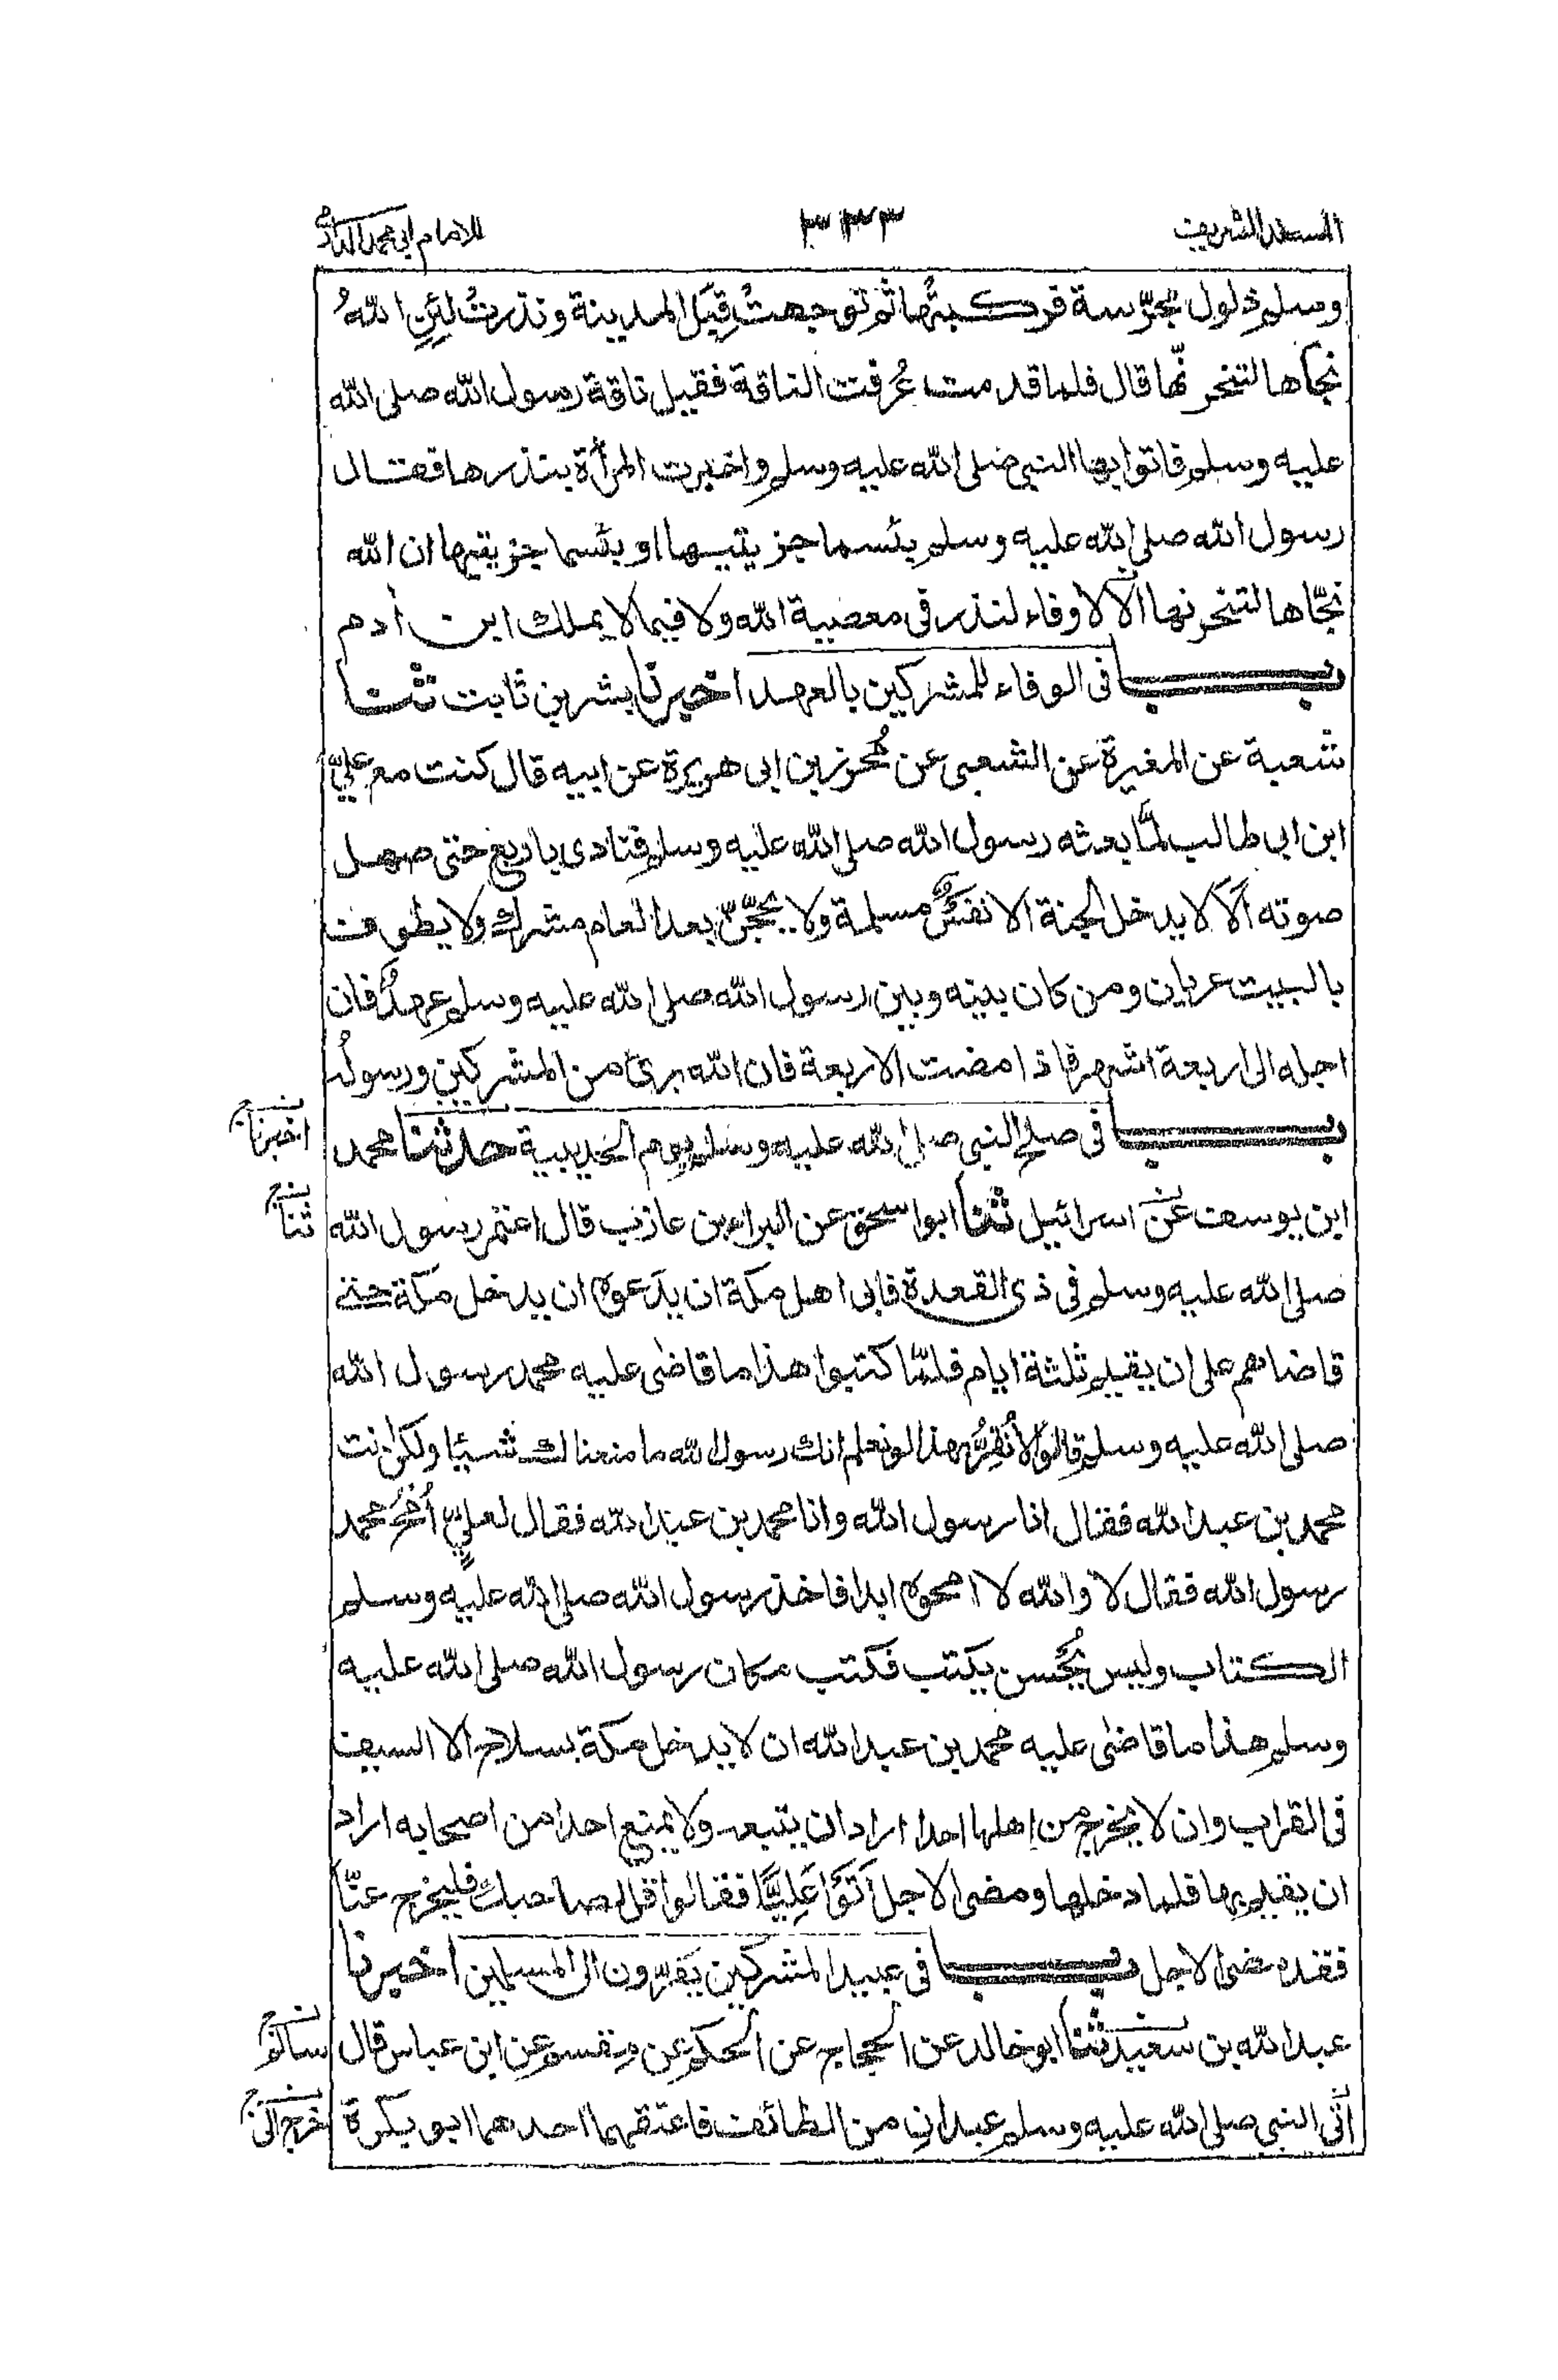 المسند الشريف ٣٣٣ للامام ابي محمد الدارمي
وسلم ذلول مُجرّسة فركبتُها ثم توجهتُ قِبَل المدينة ونذرتْ لئنِ اللهُ
نجاها لتنحرنّها قال فلما قدمت عُرفت الناقة فقيل ناقة رسول الله صلى الله
عليه وسلم فاتوا بها النبي صلى الله عليه وسلم واخبرت المرأة بنذرها فقال
رسول الله صلى الله عليه وسلم بئسما جزيتيها او بئسما جزيتيها ان الله
نجّاها لتنحرنها الا لا وفاء لنذر في معصية الله ولا فيما لا يملك ابن أدم
باب في الوفاء للمشركين بالعهد اخبرنا بشر بن ثابت ثنا
شعبة عن المغيرة عن الشعبي عن مُحرز بن ابي هريرة عن ابيه قال كنت مع عليّ
ابن ابي طالب لمّا بعثه رسول الله صلى الله عليه وسلم فنادى باربع حتى صهل
صوته اَلَا لا يدخل الجنة الا نفسٌ مسلمة ولا يحجّنّ بعد العام مشرك ولا يطوف
بالبيت عريان ومن كان بينه وبين رسول الله صلى الله عليه وسلم عهدٌ فان
اجله الى اربعة اشهر فاذا مضت الاربعة فان الله برئ من المشركين ورسولُه
باب في صلح النبي صلى الله عليه وسلم يوم الحديبية حدثنا محمد
اخبرنا
ابن يوسف عن اسرائيل ثنا ابو اسحق عن البراء بن عازب قال اعتمر رسول الله
ثنا
صلى الله عليه وسلم في ذي القعدة فابى اهل مكة ان يدَعوه ان يدخل مكة حتى
قاضاهم على ان يقيم ثلثة ايام فلمّا كتبوا هذا ما قاضى عليه محمد رسول الله
صلى الله عليه وسلم قالوا لا نُقِرُّ بهذا لو نعلم انك رسول الله ما منعناك شيئا ولكن انت
محمد بن عبد الله فقال انا رسول الله وانا محمد بن عبد الله فقال لعليٍّ اُمحُ محمد
رسول الله فقال لا والله لا امحوه ابدا فاخذ رسول الله صلى الله عليه وسلم
الكتاب وليس يُحسن يكتب فكتب مكان رسول الله صلى الله عليه
وسلم هذا ما قاضى عليه محمد بن عبد الله ان لا يدخل مكة بسلاح الا السيف
في القراب وان لا يخرج من اهلها احدا اراد ان يتبعه ولا يمنع احدا من اصحابه اراد
ان يقيم بها فلما دخلها ومضى الاجل اَتَوْا عَلِيًّا فقالوا قل لصاحبك فليخرج عنّا
فقد مضى الاجل باب في عبيد المشركين يَفرّون الى المسلمين اخبرنا
عبد الله بن سعيد ثنا ابو خالد عن الحجاج عن الحكم عن مقسم عن ابن عباس قال
اتى النبي صلى الله عليه وسلم عبدانِ من الطائف فاعتقهما احدهما ابو بكرة
خرج الى